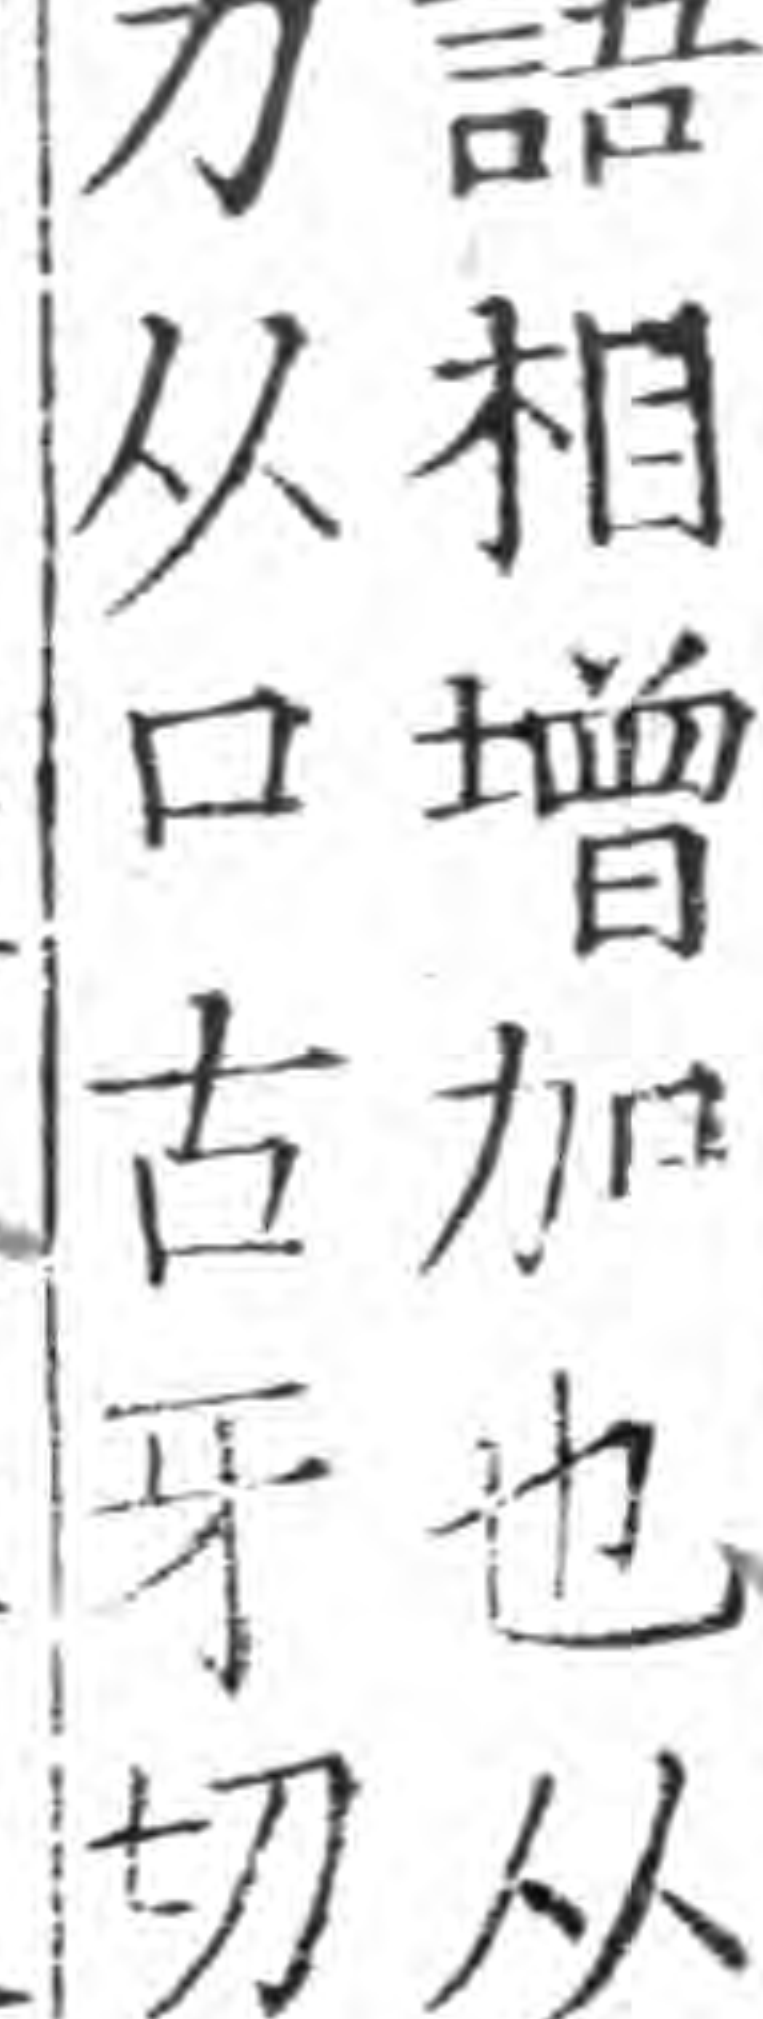 語相增加也从
力从口古牙切